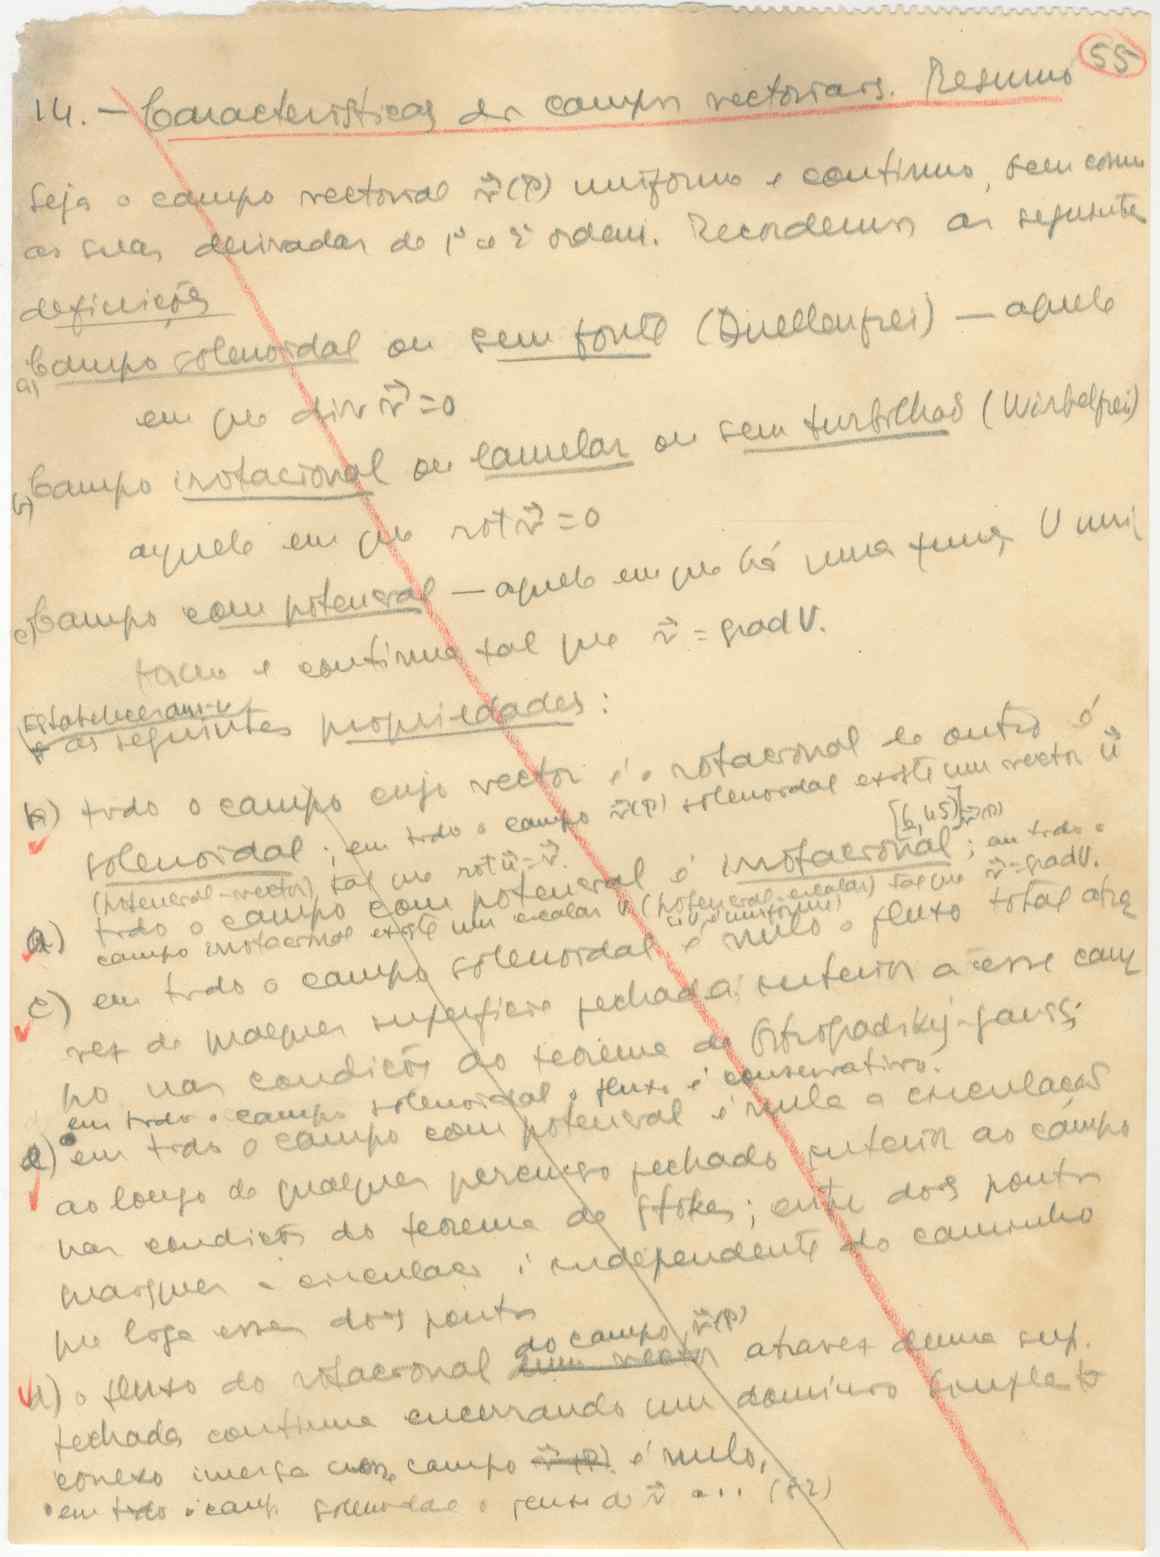 55
14. — Características de campos vectoriais. Resumo
Seja o campo vectorial v⃗(P) uniforme e contínuo, bem como
as suas derivadas de 1ª e 2ª ordem. Recordemos as seguintes
definições
a) Campo solenoidal ou sem fonte (Quellenfrei) — aquele
em que div v⃗ = 0
b) Campo irrotacional ou lamelar ou sem turbilhão (Wirbelfrei)
aquele em que rot v⃗ = 0
c) Campo com potencial — aquele em que há uma função U uni
forme e contínua tal que v⃗ = grad U.
Estabeleceram-se
as seguintes propriedades:
b) todo o campo cujo vector é o rotacional de outro é
solenoidal; em todo o campo v⃗(P) solenoidal existe um vector u⃗
(potencial-vector), tal que rot u⃗ = v⃗. [6,45]
a) todo o campo com potencial é irrotacional; em todo o v⃗(P)
campo irrotacional existe um escalar U (potencial-escalar) tal que v⃗ = grad U.
(U é uniforme)
c) em todo o campo solenoidal é nulo o fluxo total atra
vez de qualquer superfície fechada interior a esse cam
po nas condições do teorema de Ostrogradsky-Gauss;
em todo o campo solenoidal o fluxo é conservativo.
e) em todo o campo com potencial é nula a circulação
ao longo de qualquer percurso fechado interior ao campo
nas condições do teorema de Stokes; entre dois pontos
quaisquer a circulação é independente do caminho
que liga esses dois pontos
do campo v⃗(P)
d) o fluxo do rotacional dum vector através duma sup.
fechada contínua encerrando um domínio simples/te
conexo imersa no campo v⃗(P) é nulo,
em todo o camp. solenoidal o fluxo de v⃗ ... (82)